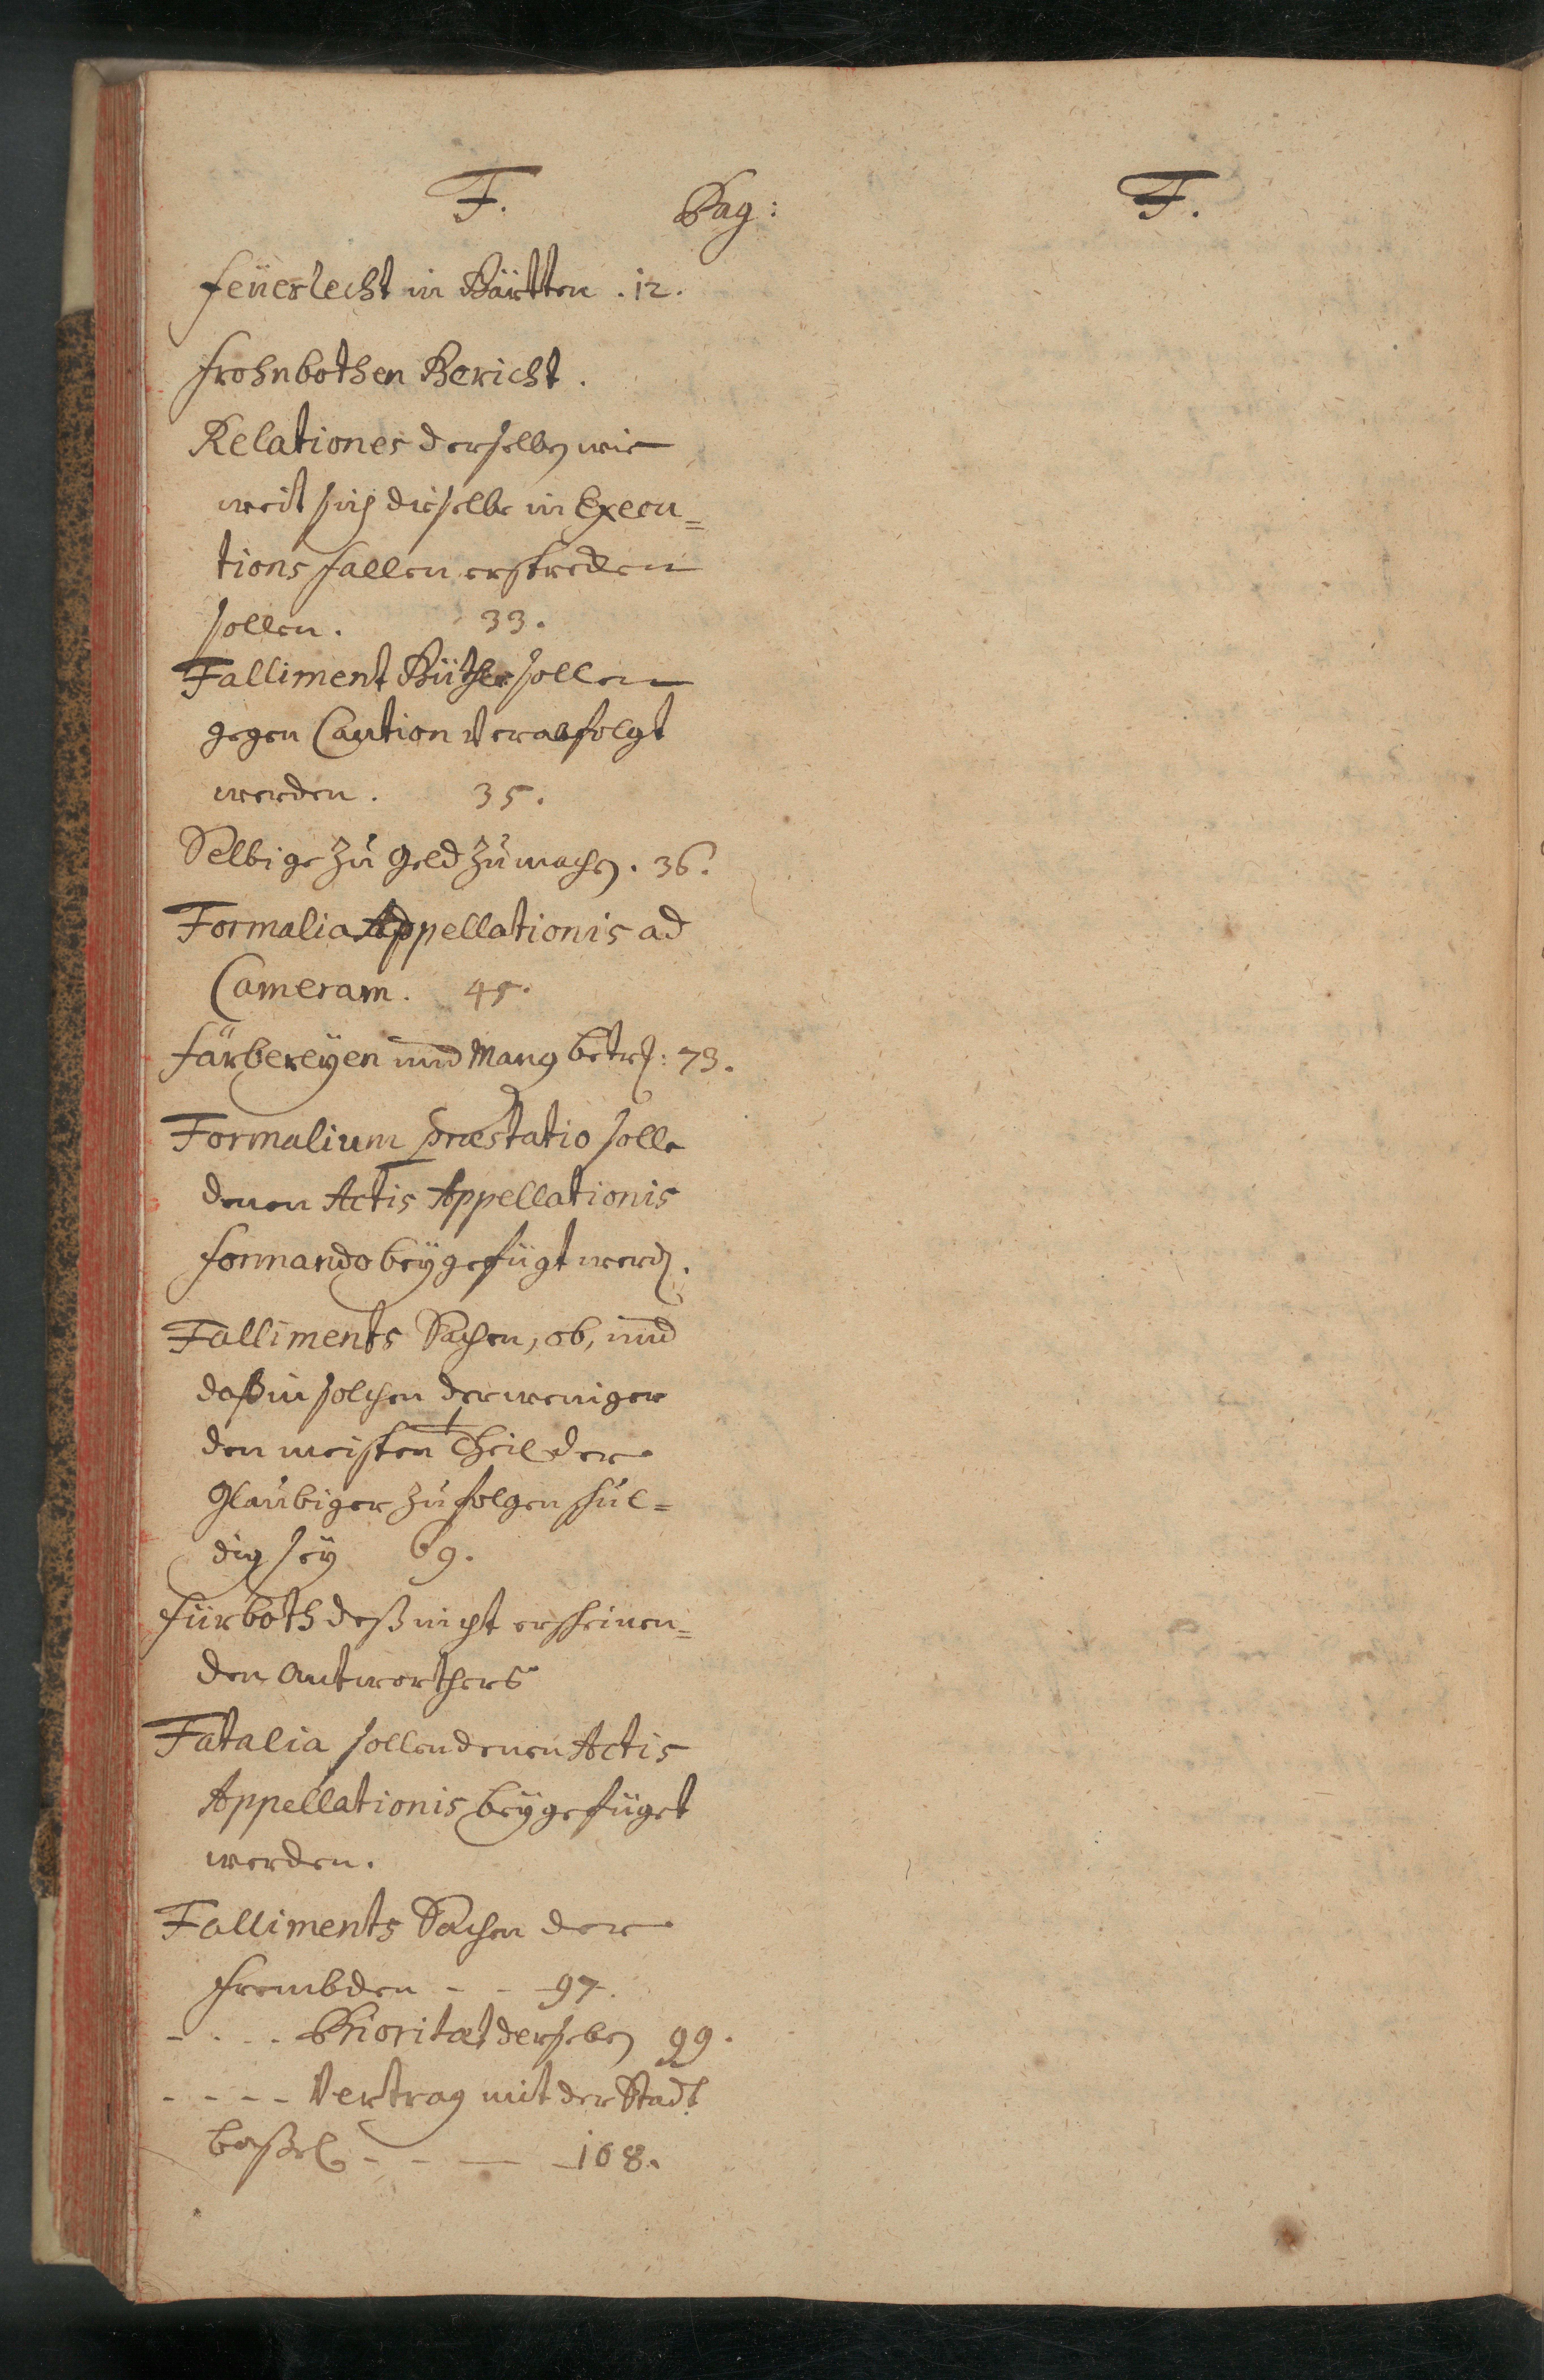 F. Pag: F.
Feüerlecht in Bütten . 12.
Frohnbothen Bericht.
Relationes derselben wie
weit sich dieselbe in Execu=
tions fallen erstrecken
sollen. 33.
Falliment Güther sollen
gegen Caution verabfolgt
werden. 35.
Selbige zu Geld zu machen. 36.
Formalia Appellationis ad
Cameram. 45.
Färbereyen und Mang betr: 73.
Formalium præstatio solle
denen Actis Appellationis
formando beygefügt werden.
Falliments Sachen, ob, und
daß in solchen der weniger
den meisten Theil der
Glaübiger zu folgen schul=
dig sey 69.
Fürboth deß nicht erscheinen=
den Antworthers
Fatalia sollen denen Actis
Appellationis beygefüget
werden.
Falliments Sachen der
Frembden - - 97.
- - - - Prioritæt derselben 99.
- - - - Vertrag mit der Stadt
Baßel - - - - 108.